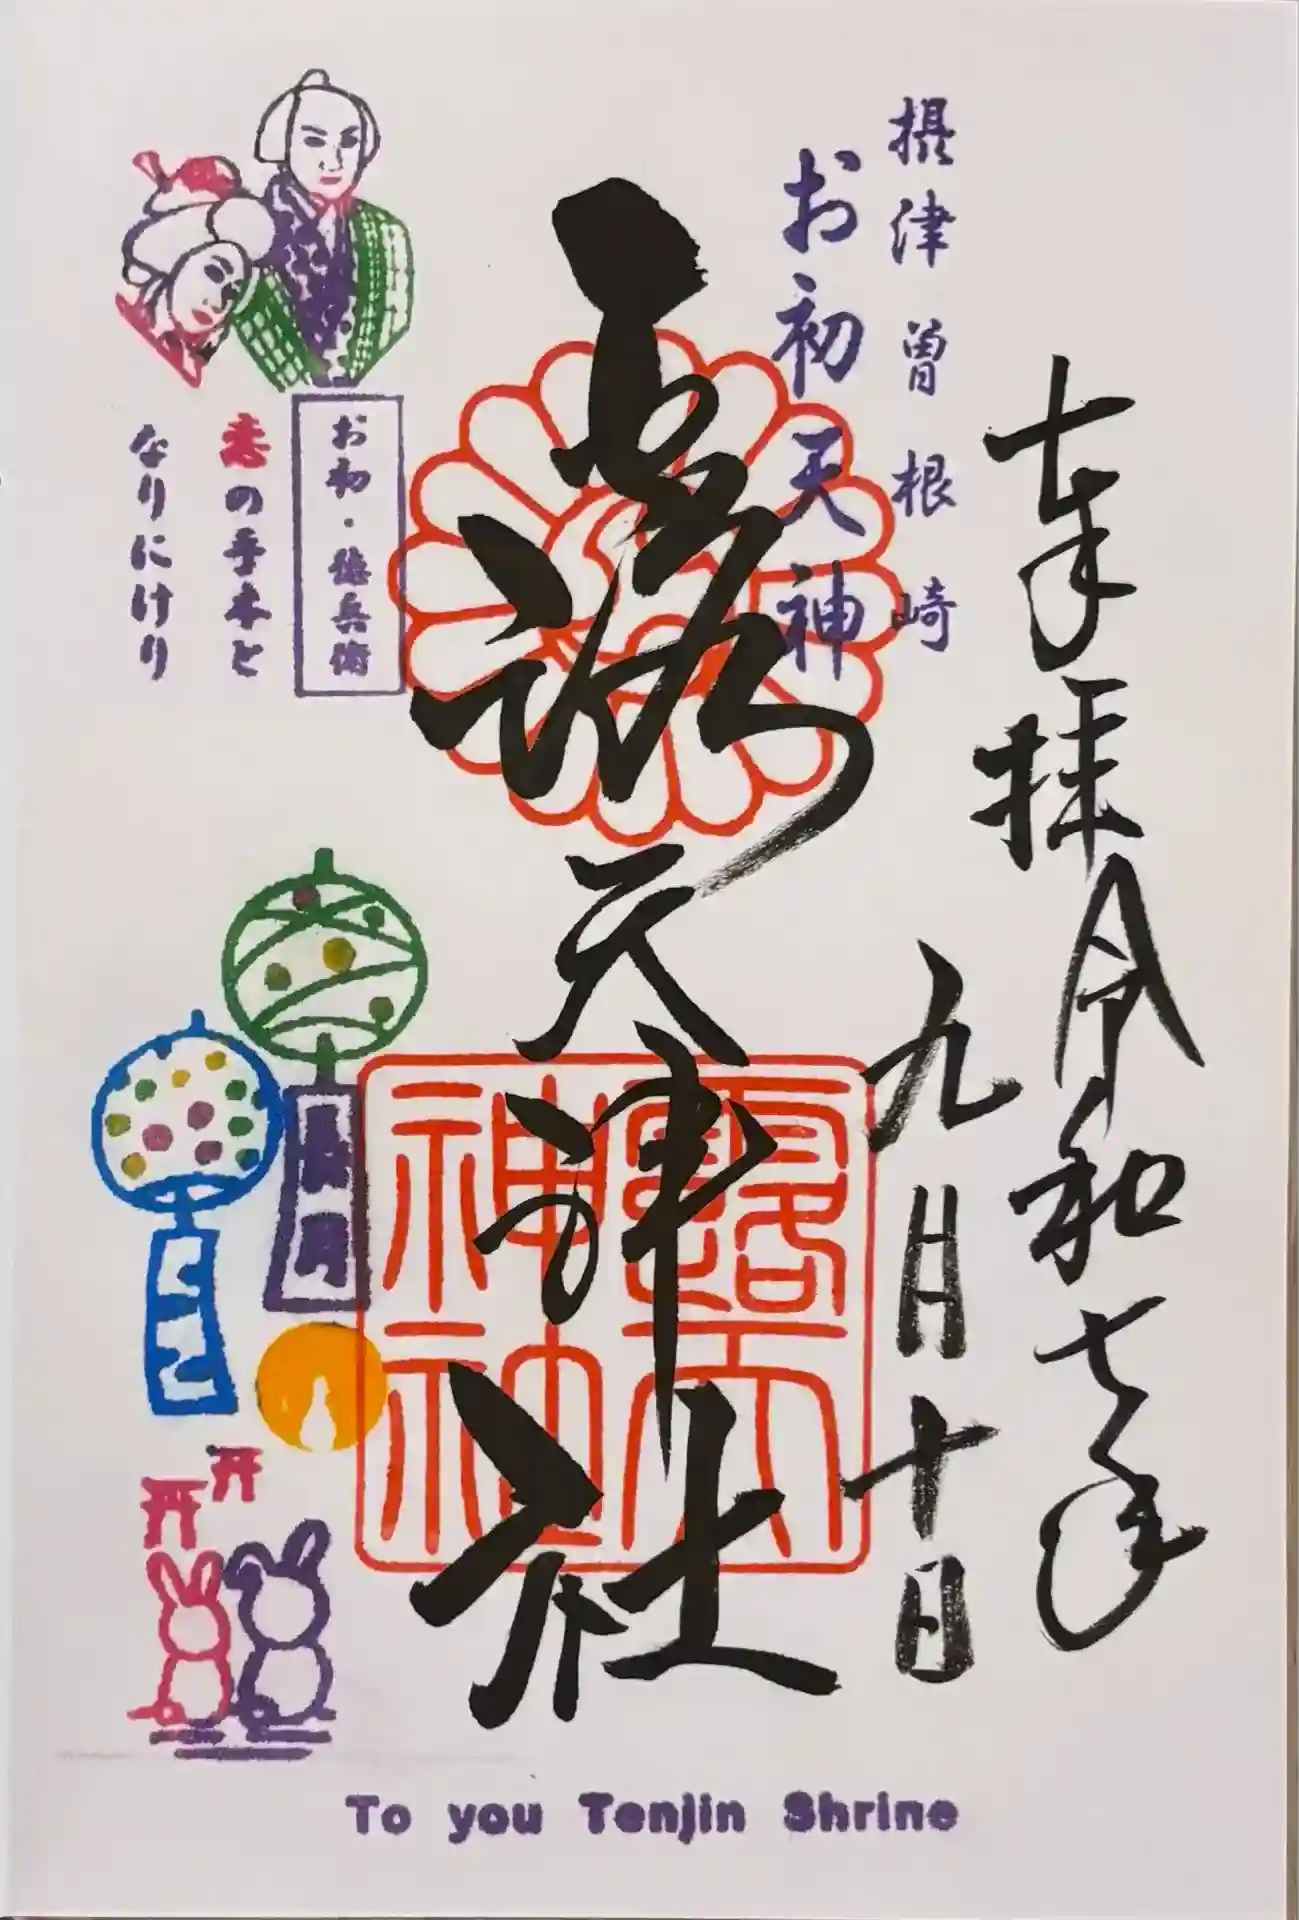 奉拝 令和七年
九月十日
摂津曽根崎
お初天神
露天神社
露天神社
お初・徳兵衛
恋の手本と
なりにけり
To you Tenjin Shrine